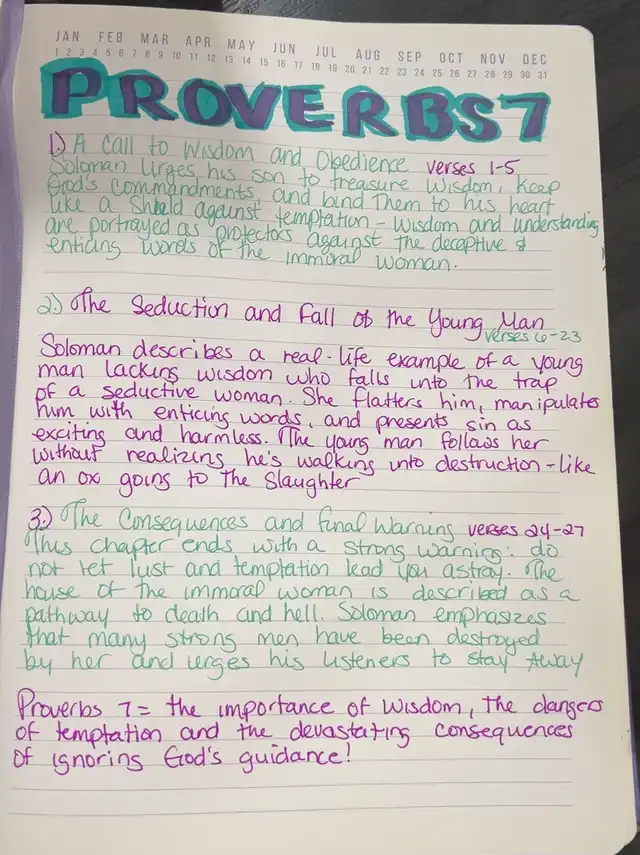 JAN FEB MAR APR MAY JUN JUL AUG SEP OCT NOV DEC
1 2 3 4 5 6 7 8 9 10 11 12 13 14 15 16 17 18 19 20 21 22 23 24 25 26 27 28 29 30 31
PROVERBS 7
1.) A Call to Wisdom and Obedience verses 1-5
Soloman Urges his son to treasure Wisdom, Keep
God's Commandments, and bind Them to his heart
like a Shield against temptation - Wisdom and understanding
are portrayed as protectors against the deceptive &
enticing words of the immoral woman.
2.) The Seduction and Fall of the Young Man
verses 6-23
Soloman describes a real-life example of a young
man lacking wisdom who falls into the trap
of a seductive woman. She flatters him, manipulates
him with enticing words, and presents sin as
exciting and harmless. The young man follows her
without realizing he's walking into destruction - like
an ox going to The Slaughter
3.) The Consequences and final Warning verses 24-27
This chapter ends with a strong warning: do
not let lust and temptation lead you astray. The
house of the immoral woman is described as a
pathway to death and hell. Soloman emphasizes
that many strong men have been destroyed
by her and urges his listeners to stay Away
Proverbs 7 = the importance of wisdom, the dangers
of temptation and the devastating consequences
of ignoring God's guidance!